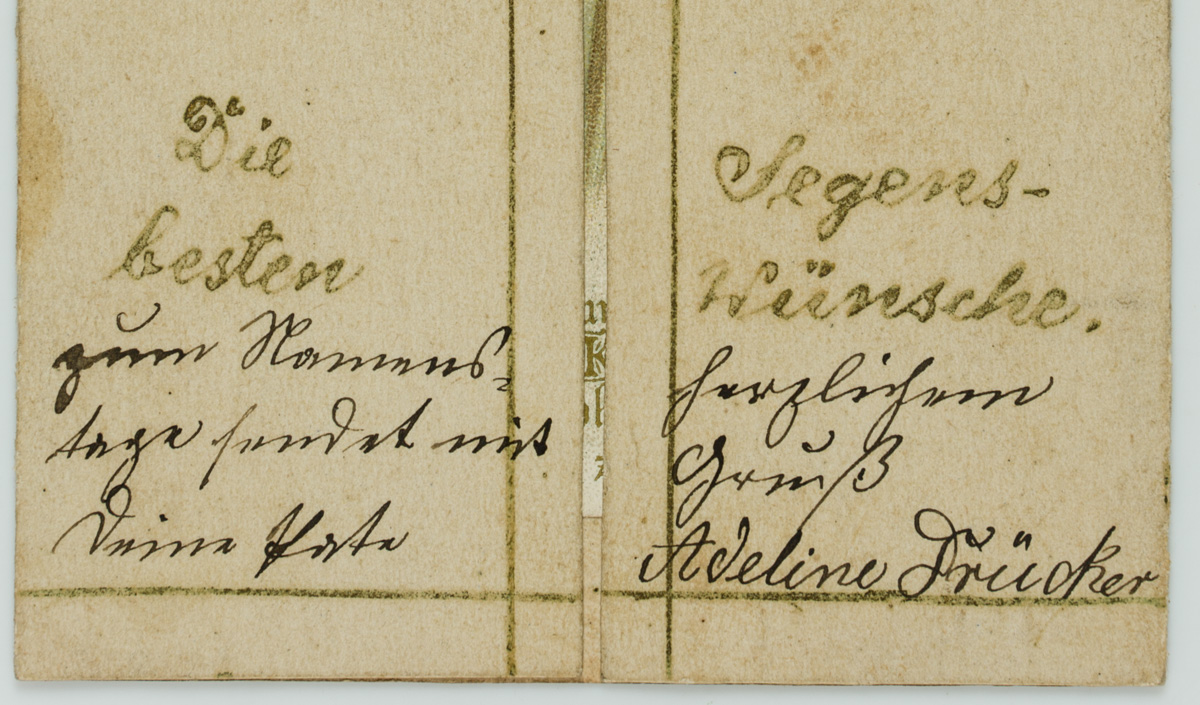 Die
besten
zum Namens-
tage sendet mit
Deine Pate
Segens-
Wünsche.
herzlichem
Gruß
Adeline Drücker